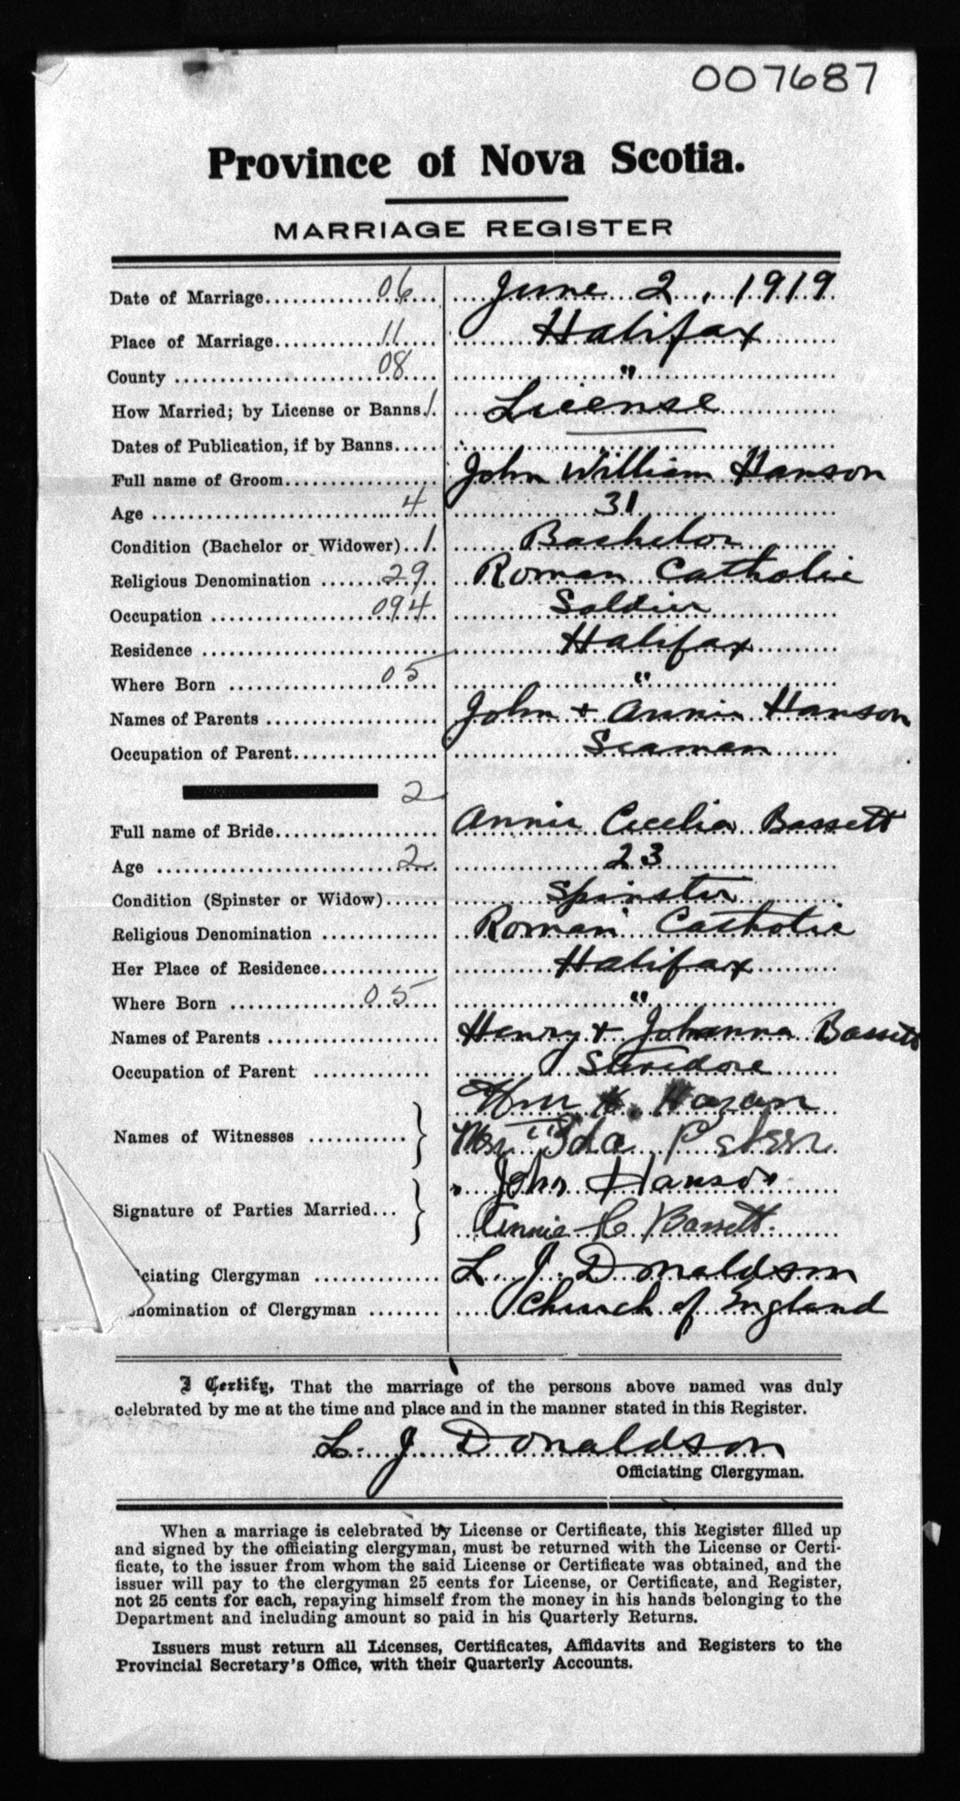 007687
Province of Nova Scotia.
MARRIAGE REGISTER
Date of Marriage 06 June 2, 1919
Place of Marriage 11 Halifax
County 08 "
How Married; by License or Banns 1 License
Dates of Publication, if by Banns
Full name of Groom John William Hanson
Age 4 31
Condition (Bachelor or Widower) 1 Bachelor
Religious Denomination 29 Roman Catholic
Occupation 094 Soldier
Residence Halifax
Where Born 05 "
Names of Parents John + Annie Hanson
Occupation of Parent Seaman
2
Full name of Bride Annie Cecelia Bassett
Age 2 23
Condition (Spinster or Widow) Spinster
Religious Denomination Roman Catholic
Her Place of Residence Halifax
Where Born 05 "
Names of Parents Henry + Johanna Bassett
Occupation of Parent Stevedore
Wm
Names of Witnesses
Mrs Ida
John Hanson
Signature of Parties Married
Annie C Bassett
ciating Clergyman L. J. Donaldson
nomination of Clergyman Church of England
I Certify, That the marriage of the persons above named was duly
celebrated by me at the time and place and in the manner stated in this Register.
L. J. Donaldson
Officiating Clergyman.
When a marriage is celebrated by License or Certificate, this Register filled up
and signed by the officiating clergyman, must be returned with the License or Certi-
ficate, to the issuer from whom the said License or Certificate was obtained, and the
issuer will pay to the clergyman 25 cents for License, or Certificate, and Register,
not 25 cents for each, repaying himself from the money in his hands belonging to the
Department and including amount so paid in his Quarterly Returns.
Issuers must return all Licenses, Certificates, Affidavits and Registers to the
Provincial Secretary's Office, with their Quarterly Accounts.